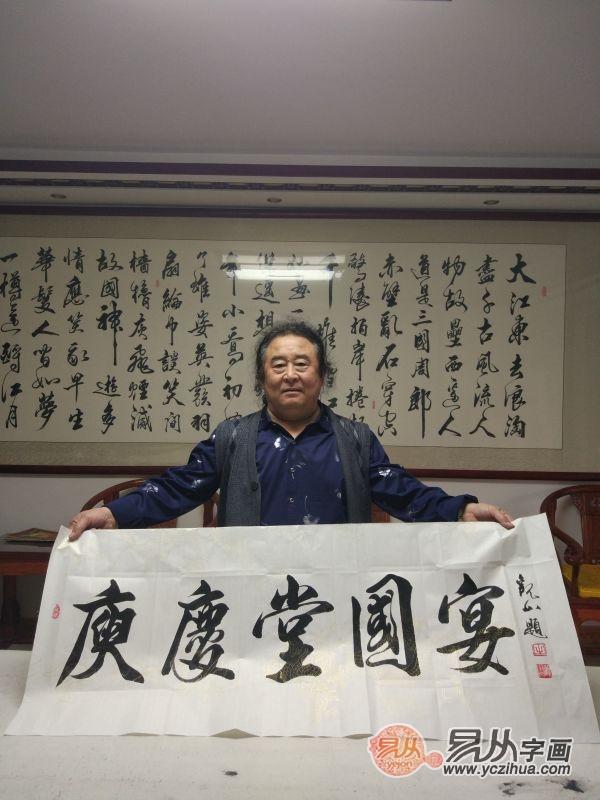 大江東去浪淘
盡千古風流人
物故壘西邊人
道是三國周郎
赤壁亂石穿空
驚濤拍岸捲起
遥想
年小喬初
了雄姿英發羽
扇綸巾談笑間
檣櫓灰飛煙滅
故國神遊多
情應笑我早生
華髮人間如夢
一樽還酹江月
庾慶堂國宴
觀山題
易从
yicon
易从字画
www.yczihua.com